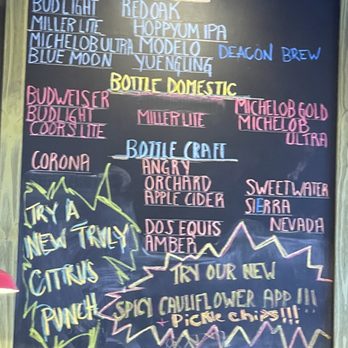 BUDLIGHT RED OAK
MILLER LITE HOPPYUM IPA
MICHELOB ULTRA MODELO DEACON BREW
BLUE MOON YUENGLING
BOTTLE DOMESTIC
BUDWEISER MICHELOB GOLD
BUDLIGHT MILLER LITE MICHELOB
COORS LITE ULTRA
BOTTLE CRAFT
CORONA ANGRY
ORCHARD SWEETWATER
APPLE CIDER SIERRA
NEVADA
DOS EQUIS
AMBER
TRY A
NEW TRULY
CITRUS
PUNCH
TRY OUR NEW
SPICY CAULIFLOWER APP!!!
+ PICKLE CHIPS!!!